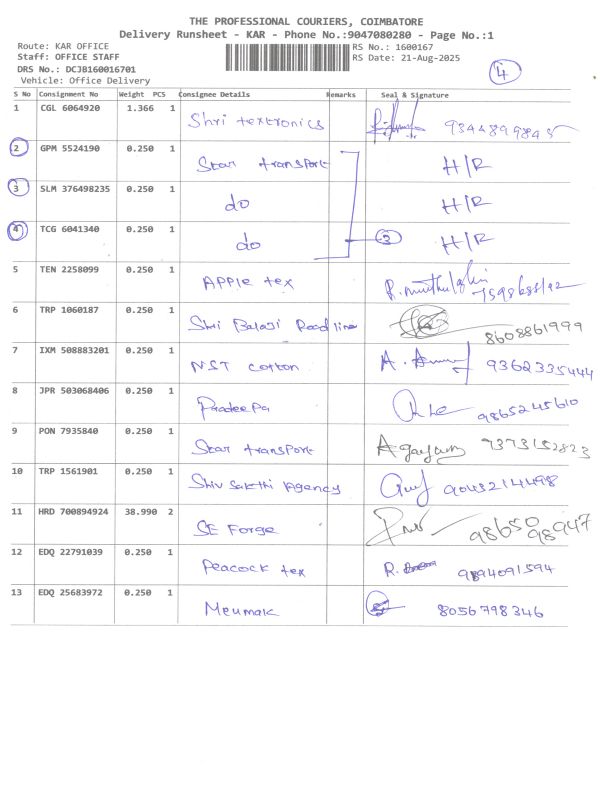 THE PROFESSIONAL COURIERS, COIMBATORE
Delivery Runsheet - KAR - Phone No.:9047080280 - Page No.:1
Route: KAR OFFICE RS No.: 1600167
Staff: OFFICE STAFF RS Date: 21-Aug-2025
DRS No.: DCJB160016701
Vehicle: Office Delivery
4
S No Consignment No Weight PCS Consignee Details Remarks Seal & Signature
1 CGL 6064920 1.366 1 Shri textronics
2 GPM 5524190 0.250 1 Star transport H/R
3 SLM 376498235 0.250 1 do H/R
4 TCG 6041340 0.250 1 do 3 H/R
5 TEN 2258099 0.250 1 APPle tex
6 TRP 1060187 0.250 1 Shri Balaji Roadline 8608861999
7 IXM 508883201 0.250 1 NST cotton 9362335444
8 JPR 503068406 0.250 1 PradeePa 9865245610
9 PON 7935840 0.250 1 Star transport 7373152823
10 TRP 1561901 0.250 1 Shiv Sakthi Agency 9043214498
11 HRD 700894924 38.990 2 SE Forge 98650 98947
12 EDQ 22791039 0.250 1 Peacock tex 9894091594
13 EDQ 25683972 0.250 1 Meumak 8056798346